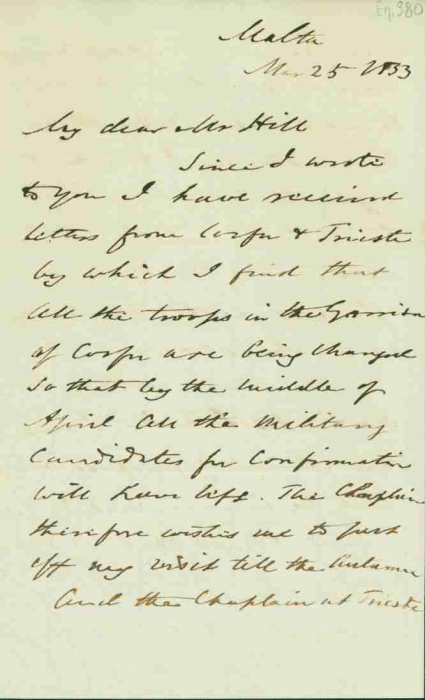 En. 380
Malta
Mar 25 1853
My dear Mr Hill
Since I wrote
to you I have received
letters from Corfu & Trieste
by which I find that
all the troops in the Garrison
of Corfu are being changed
so that by the middle of
April all the Military
Candidates for Confirmation
will have left. The Chaplain
therefore wishes me to put
off my visit till the Autumn
And the Chaplain at Trieste